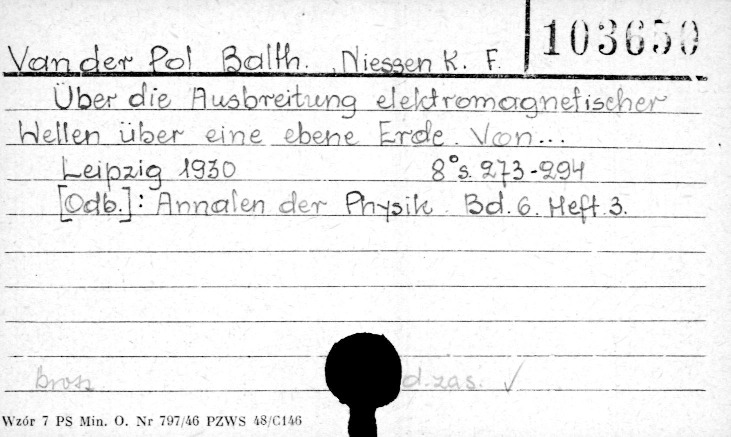 Van der Pol Balth., Niessen K. F. 103650
Über die Ausbreitung elektromagnetischer
Wellen über eine ebene Erde. Von...
Leipzig 1930 8° s. 273-294
[Odb.]: Annalen der Physik. Bd. 6. Heft 3.
brosz d. zas. ✓
Wzór 7 PS Min. O. Nr 797/46 PZWS 48/C146